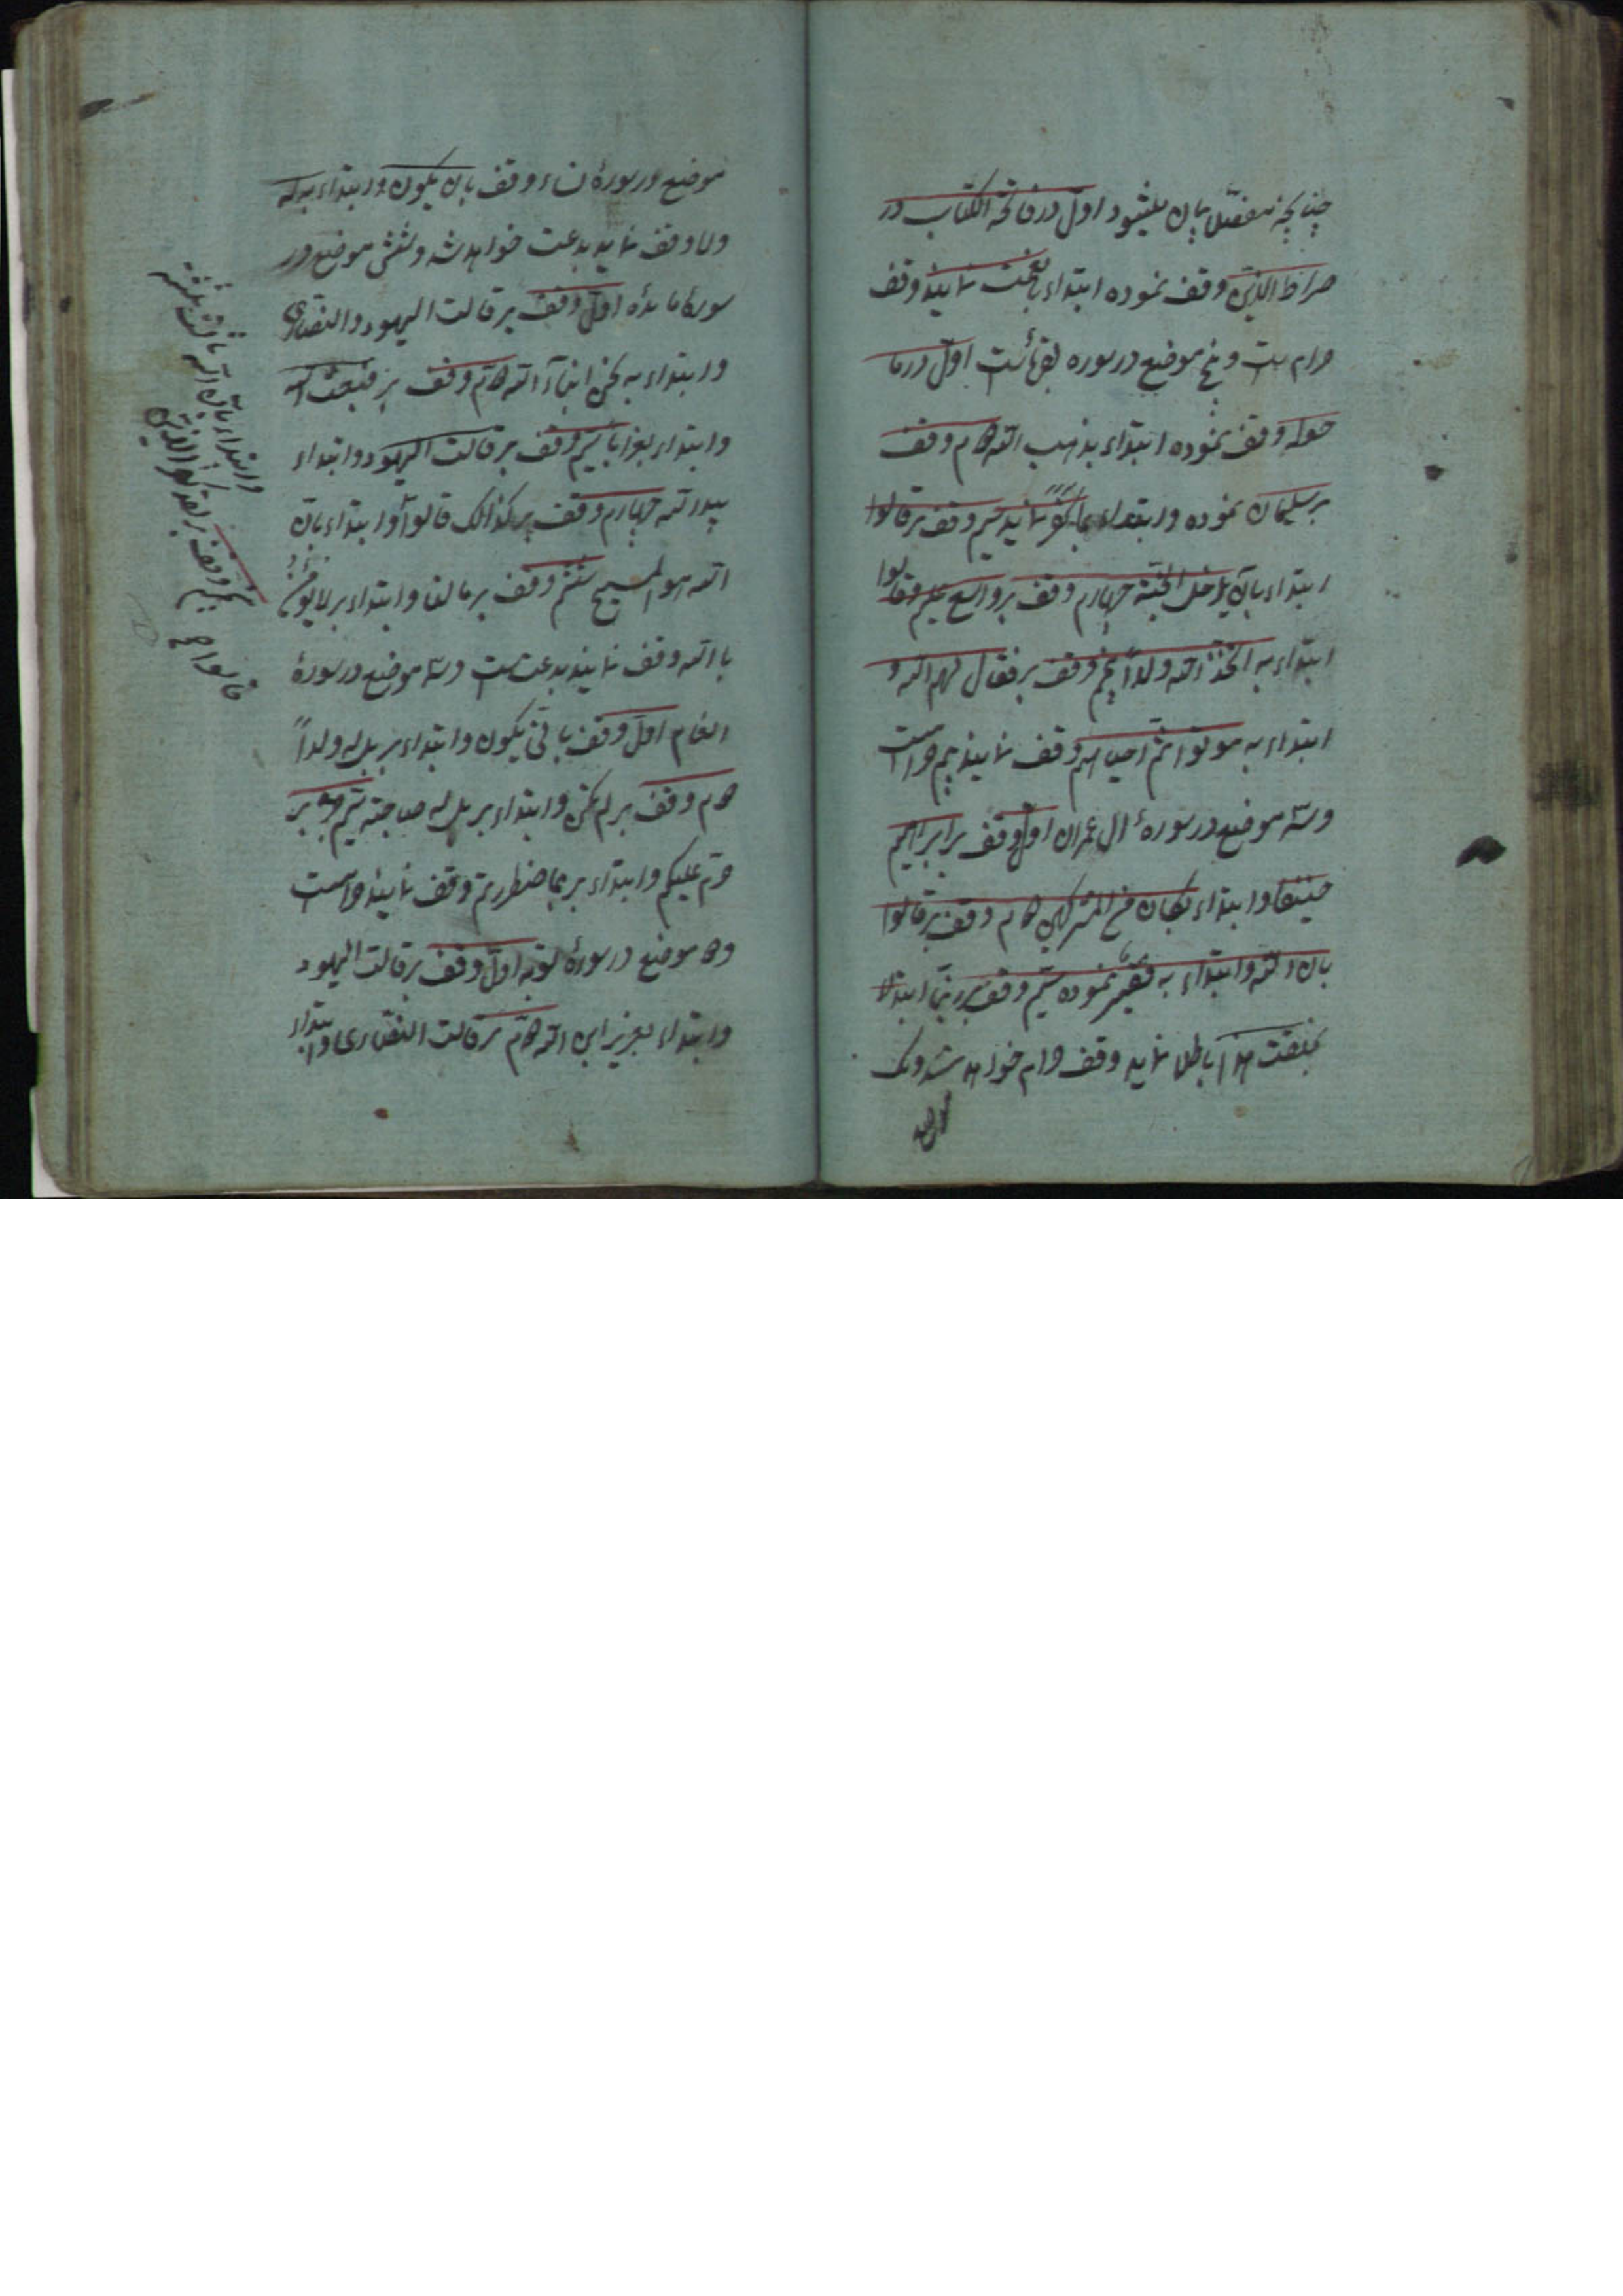 چنانچه مفصل بیان میشود اول در فاتحة الکتاب در
صراط الذین وقف نموده ابتداء بانعمت نمایند وقف
حرام ست و پنج موضع در سوره بقره است اول در ما
حوله وقف نموده ابتداء بذهب الله دوم وقف
بر سلیمان نموده و ابتداء بما کفر نماید سیم وقف بر قالوا
ابتداء بان یدخل الجنة چهارم وقف بر واسع علیم وقالوا
ابتداء به اتخذ الله ولداً پنجم وقف بر فقال لهم الله و
ابتداء به موتوا ثم احیاهم وقف نمایند هم حرامست
و سه موضع در سورهٔ ال عمران اول وقف بر ابراهیم
حنیفا و ابتداء بکان من المشرکین دوم وقف بر قالوا
بان الله و ابتداء به فقیر نموده سیم وقف بر ربنا ابتداء
بخلقت هذا باطلا نماید وقف حرام خواهد شد و یک
موضع
موضع در سورهٔ نساء وقف بان یکون و ابتداء به له
ولد وقف نماید بدعت خواهد شد و شش موضع در
سورهٔ مائده اول وقف بر قالت الیهود والنصاری
و ابتداء به نحن ابناء الله دوم وقف بر فبعث الله
و ابتداء بغرابا سیم وقف بر قالت الیهود و ابتداء
بید الله چهارم وقف بر کذالک قالوا و ابتداء بان
الله هو المسیح ششم وقف بر مالنا و ابتداء بر لانؤمن
با الله وقف نمایند بدعت ست و سه موضع در سورهٔ
انعام اول وقف بانی یکون و ابتداء بر بل له ولداً
دوم وقف بر لم تکن و ابتداء بر بل له صاحبة سیم وقف بر
حرم علیکم و ابتداء بر بما ضطررتم وقف نمایند حرامست
و دو موضع در سورهٔ توبه اول وقف بر قالت الیهود
و ابتداء بعزیر ابن الله دوم بر قالت النصاری و ابتداء
پنجم وقف بر لقد کفر الذین
قالوا
و ابتداء بان الله ثالث ثلثة